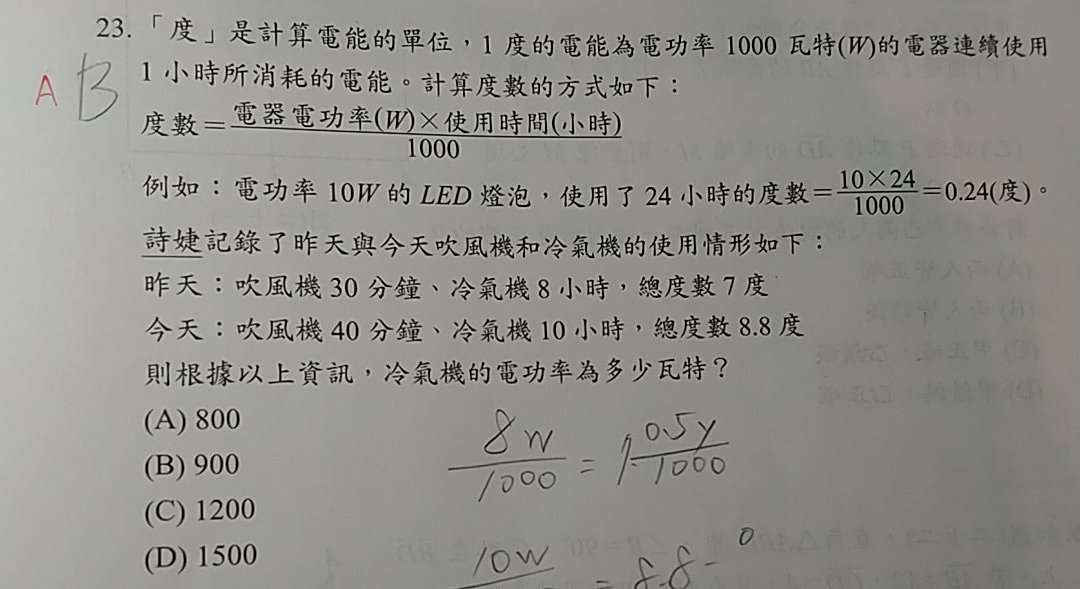 23.「度」是計算電能的單位，1 度的電能為電功率 1000 瓦特(W)的電器連續使用
A B 1 小時所消耗的電能。計算度數的方式如下：
度數＝電器電功率(W)×使用時間(小時)/1000
例如：電功率 10W 的 LED 燈泡，使用了 24 小時的度數＝10×24/1000＝0.24(度)。
詩婕記錄了昨天與今天吹風機和冷氣機的使用情形如下：
昨天：吹風機 30 分鐘、冷氣機 8 小時，總度數 7 度
今天：吹風機 40 分鐘、冷氣機 10 小時，總度數 8.8 度
則根據以上資訊，冷氣機的電功率為多少瓦特？
(A) 800
(B) 900
(C) 1200
(D) 1500
8W/1000 = 0.5y/1000
10W = 8.8-